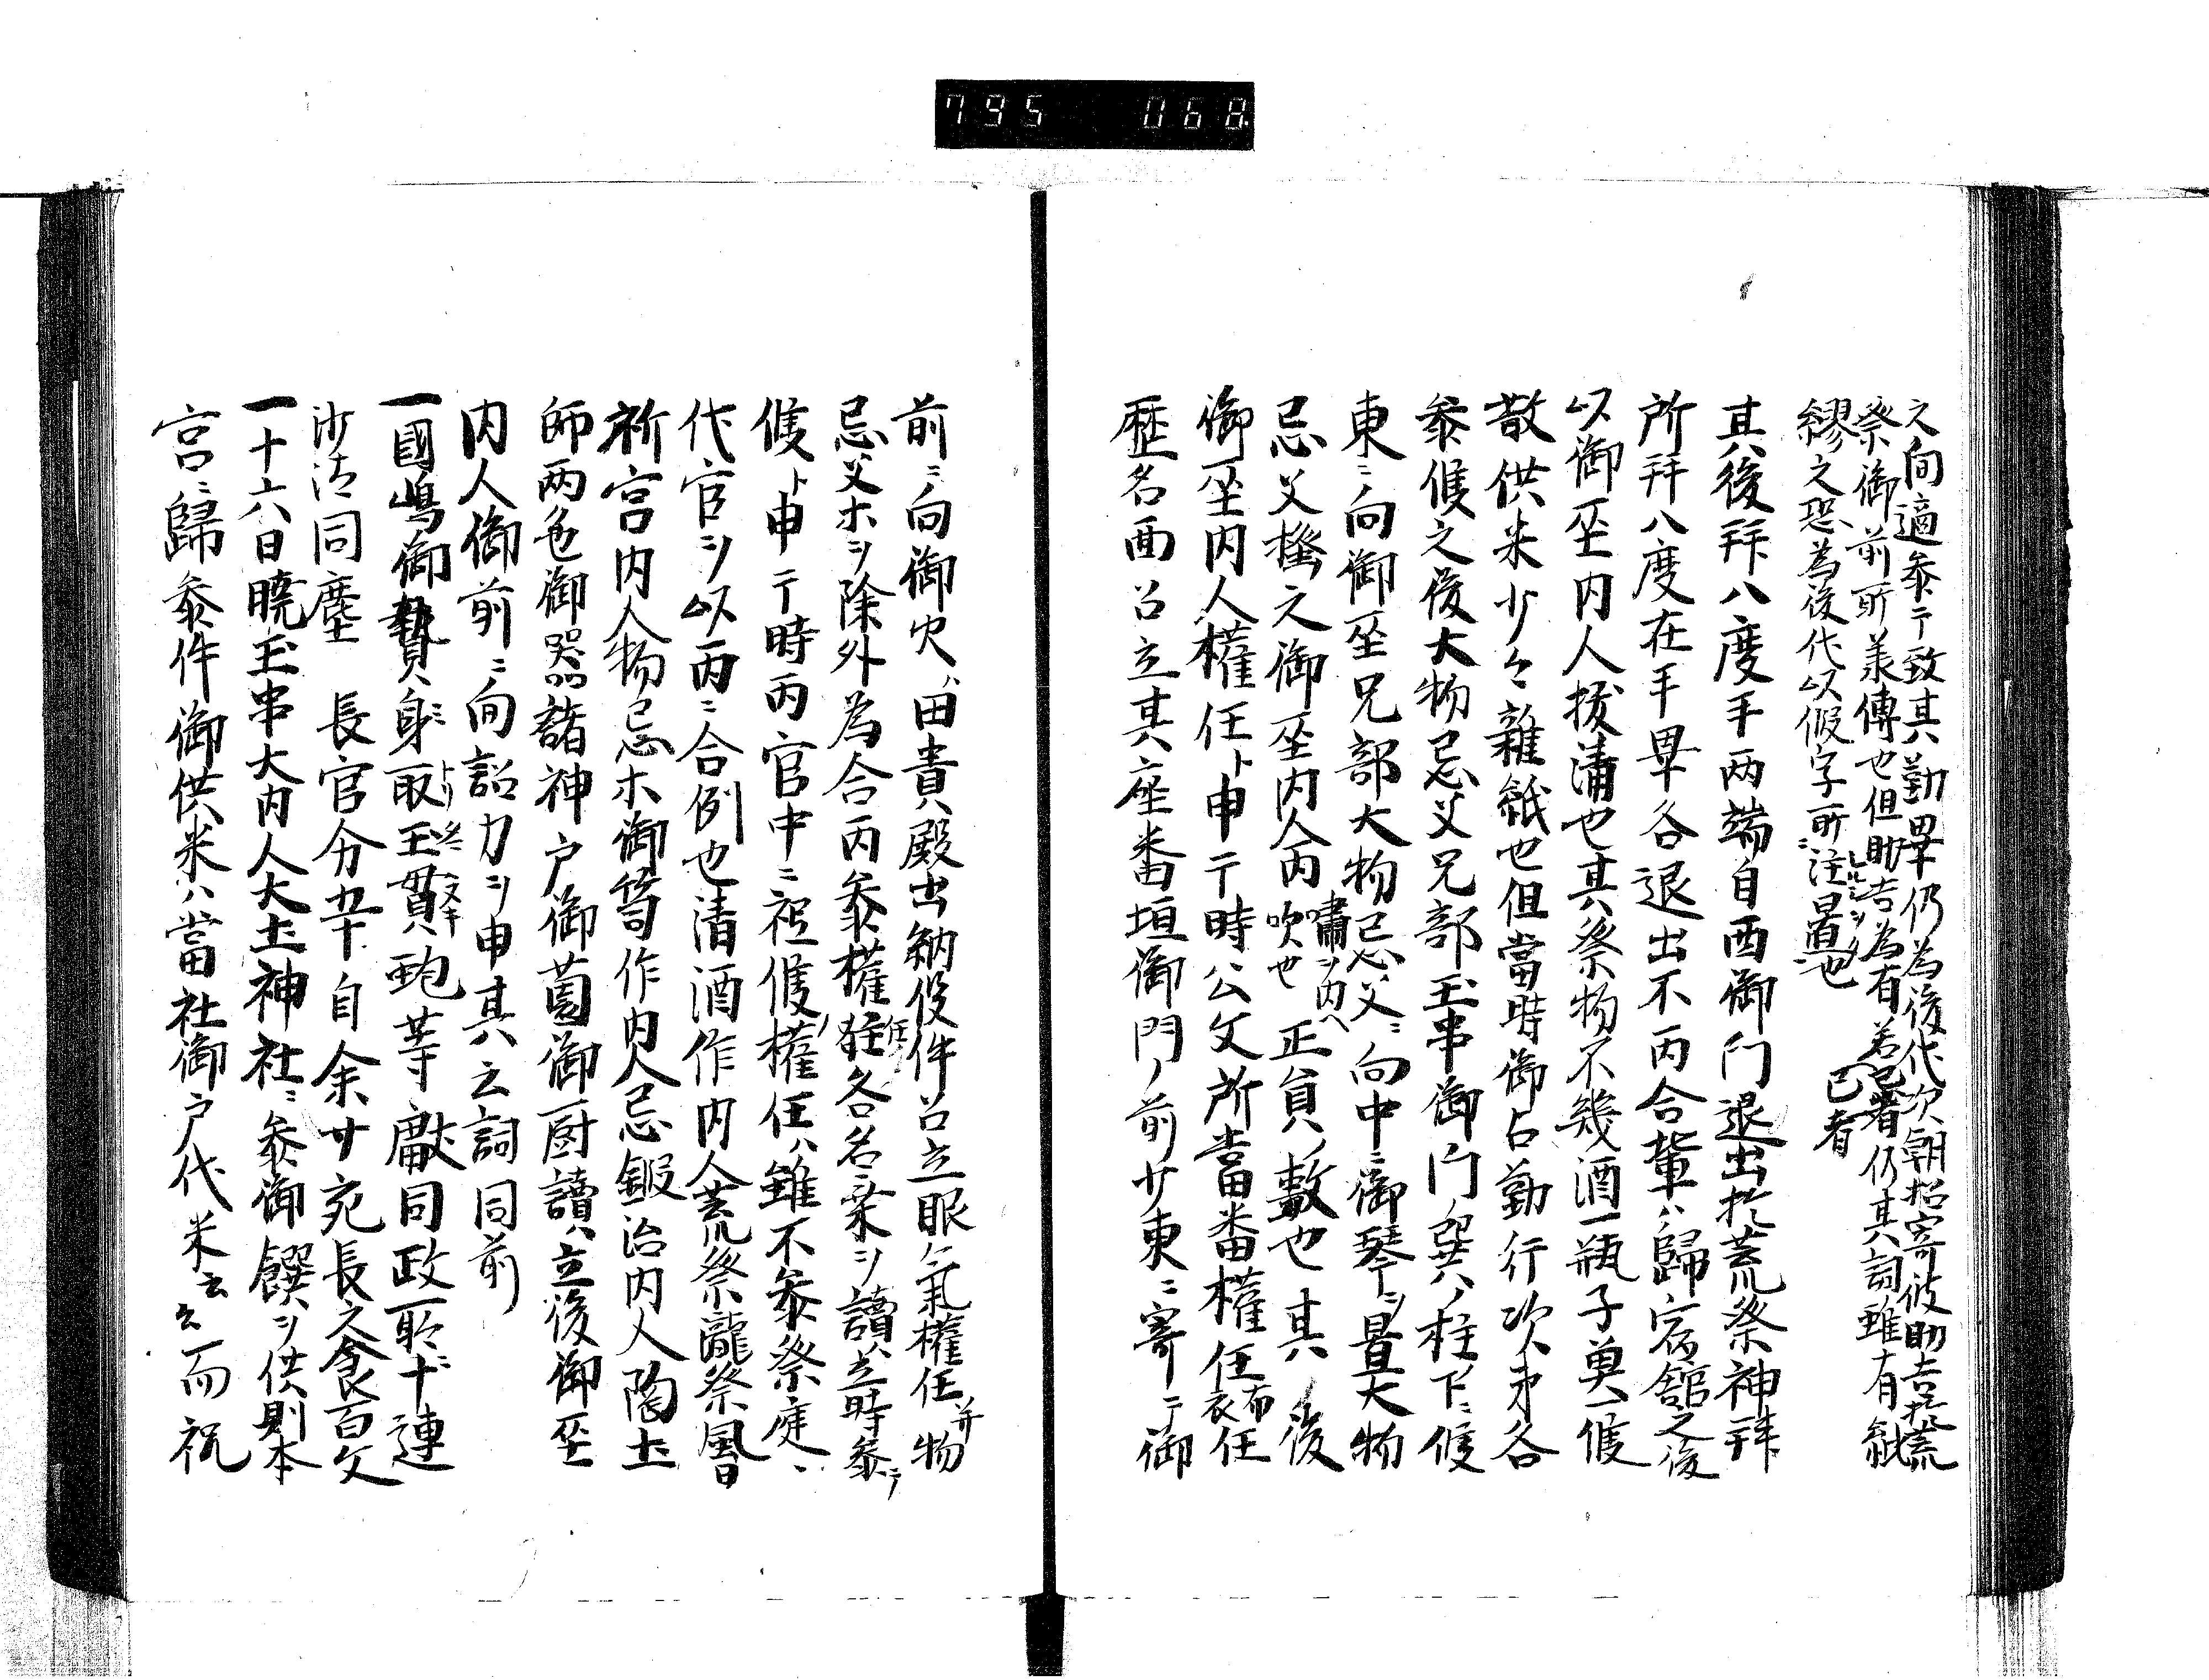 795 068
之間適参テ致其勤畢仍為後代次朝招寄彼助吉於荒
祭御前所羕傳也但助吉為有若已者仍其詞雖有紕
繆之恐為後代以假字所注置也 已者
其後拜八度手両端自西御门退出於荒祭神拜
所拜八度在手畢各退出不丙合輩ハ歸宿舘之後
以御巫内人捄清也其祭物不幾酒一瓶子奠一候
散供米少々雜紙也但當時御占勤行次第各
参候之後大物忌父兄部玉串御门ノ巽ハノ柱下ニ候
東ニ向御巫兄部大物忌父ニ向中ニ御琴ヲ置大物
忌父搔之御巫内人丙嘯ヲ内ヘ吹也正員ノ數也其ノ後
御巫内人權任ト申テ時公文所當番權任布衣任
歴名面召立其座番垣御門ノ前サ東ニ寄テ御
前ニ向御火、由貴殿出納役件召立眼气氣權任并物
忌父ホヲ除外為合丙参權任各名乗ヲ讀立時参テ
候ト申テ時丙官中ニ祗候權任ハ雖不参祭庭、
代官ヲ以丙ニ合例也清酒作内人荒祭瀧祭風日
祈宮内人物忌ホ御笥作内人忌鍜治内人陶土
師両色御器諸神戸御薗御厨讀ハ立後御巫
内人御前ニ向詔刀ヲ申其云詞同前
一國嶋御贄ハ身取玉貫ハ鮑等廳同政所十連
沙汰同塵 長官分五十自余廿宛長之食百文
一十六日曉玉串大内人大土神社ニ参御饌ヲ供則本
宮ニ歸参件御供米ハ當社御戸代米云々而祝